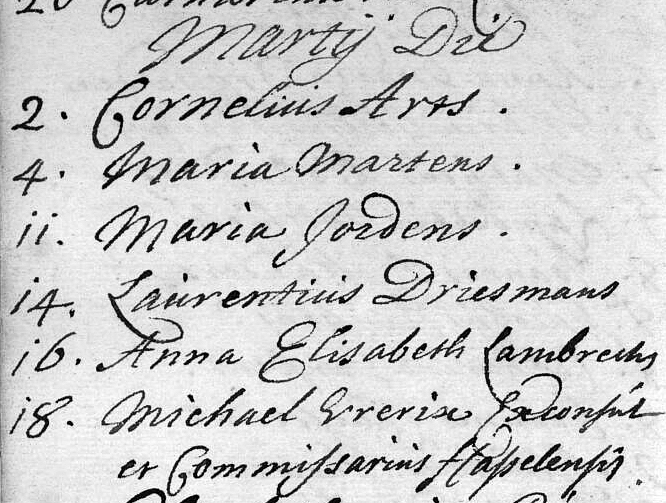 Martij Die
2. Cornelius Arts.
4. Maria Martens.
11. Maria Jordens.
14. Laurentius Driesmans
16. Anna Elisabeth Lambrechs
18. Michael Vrerix Exconsul
et Commissarius Hasselensis.